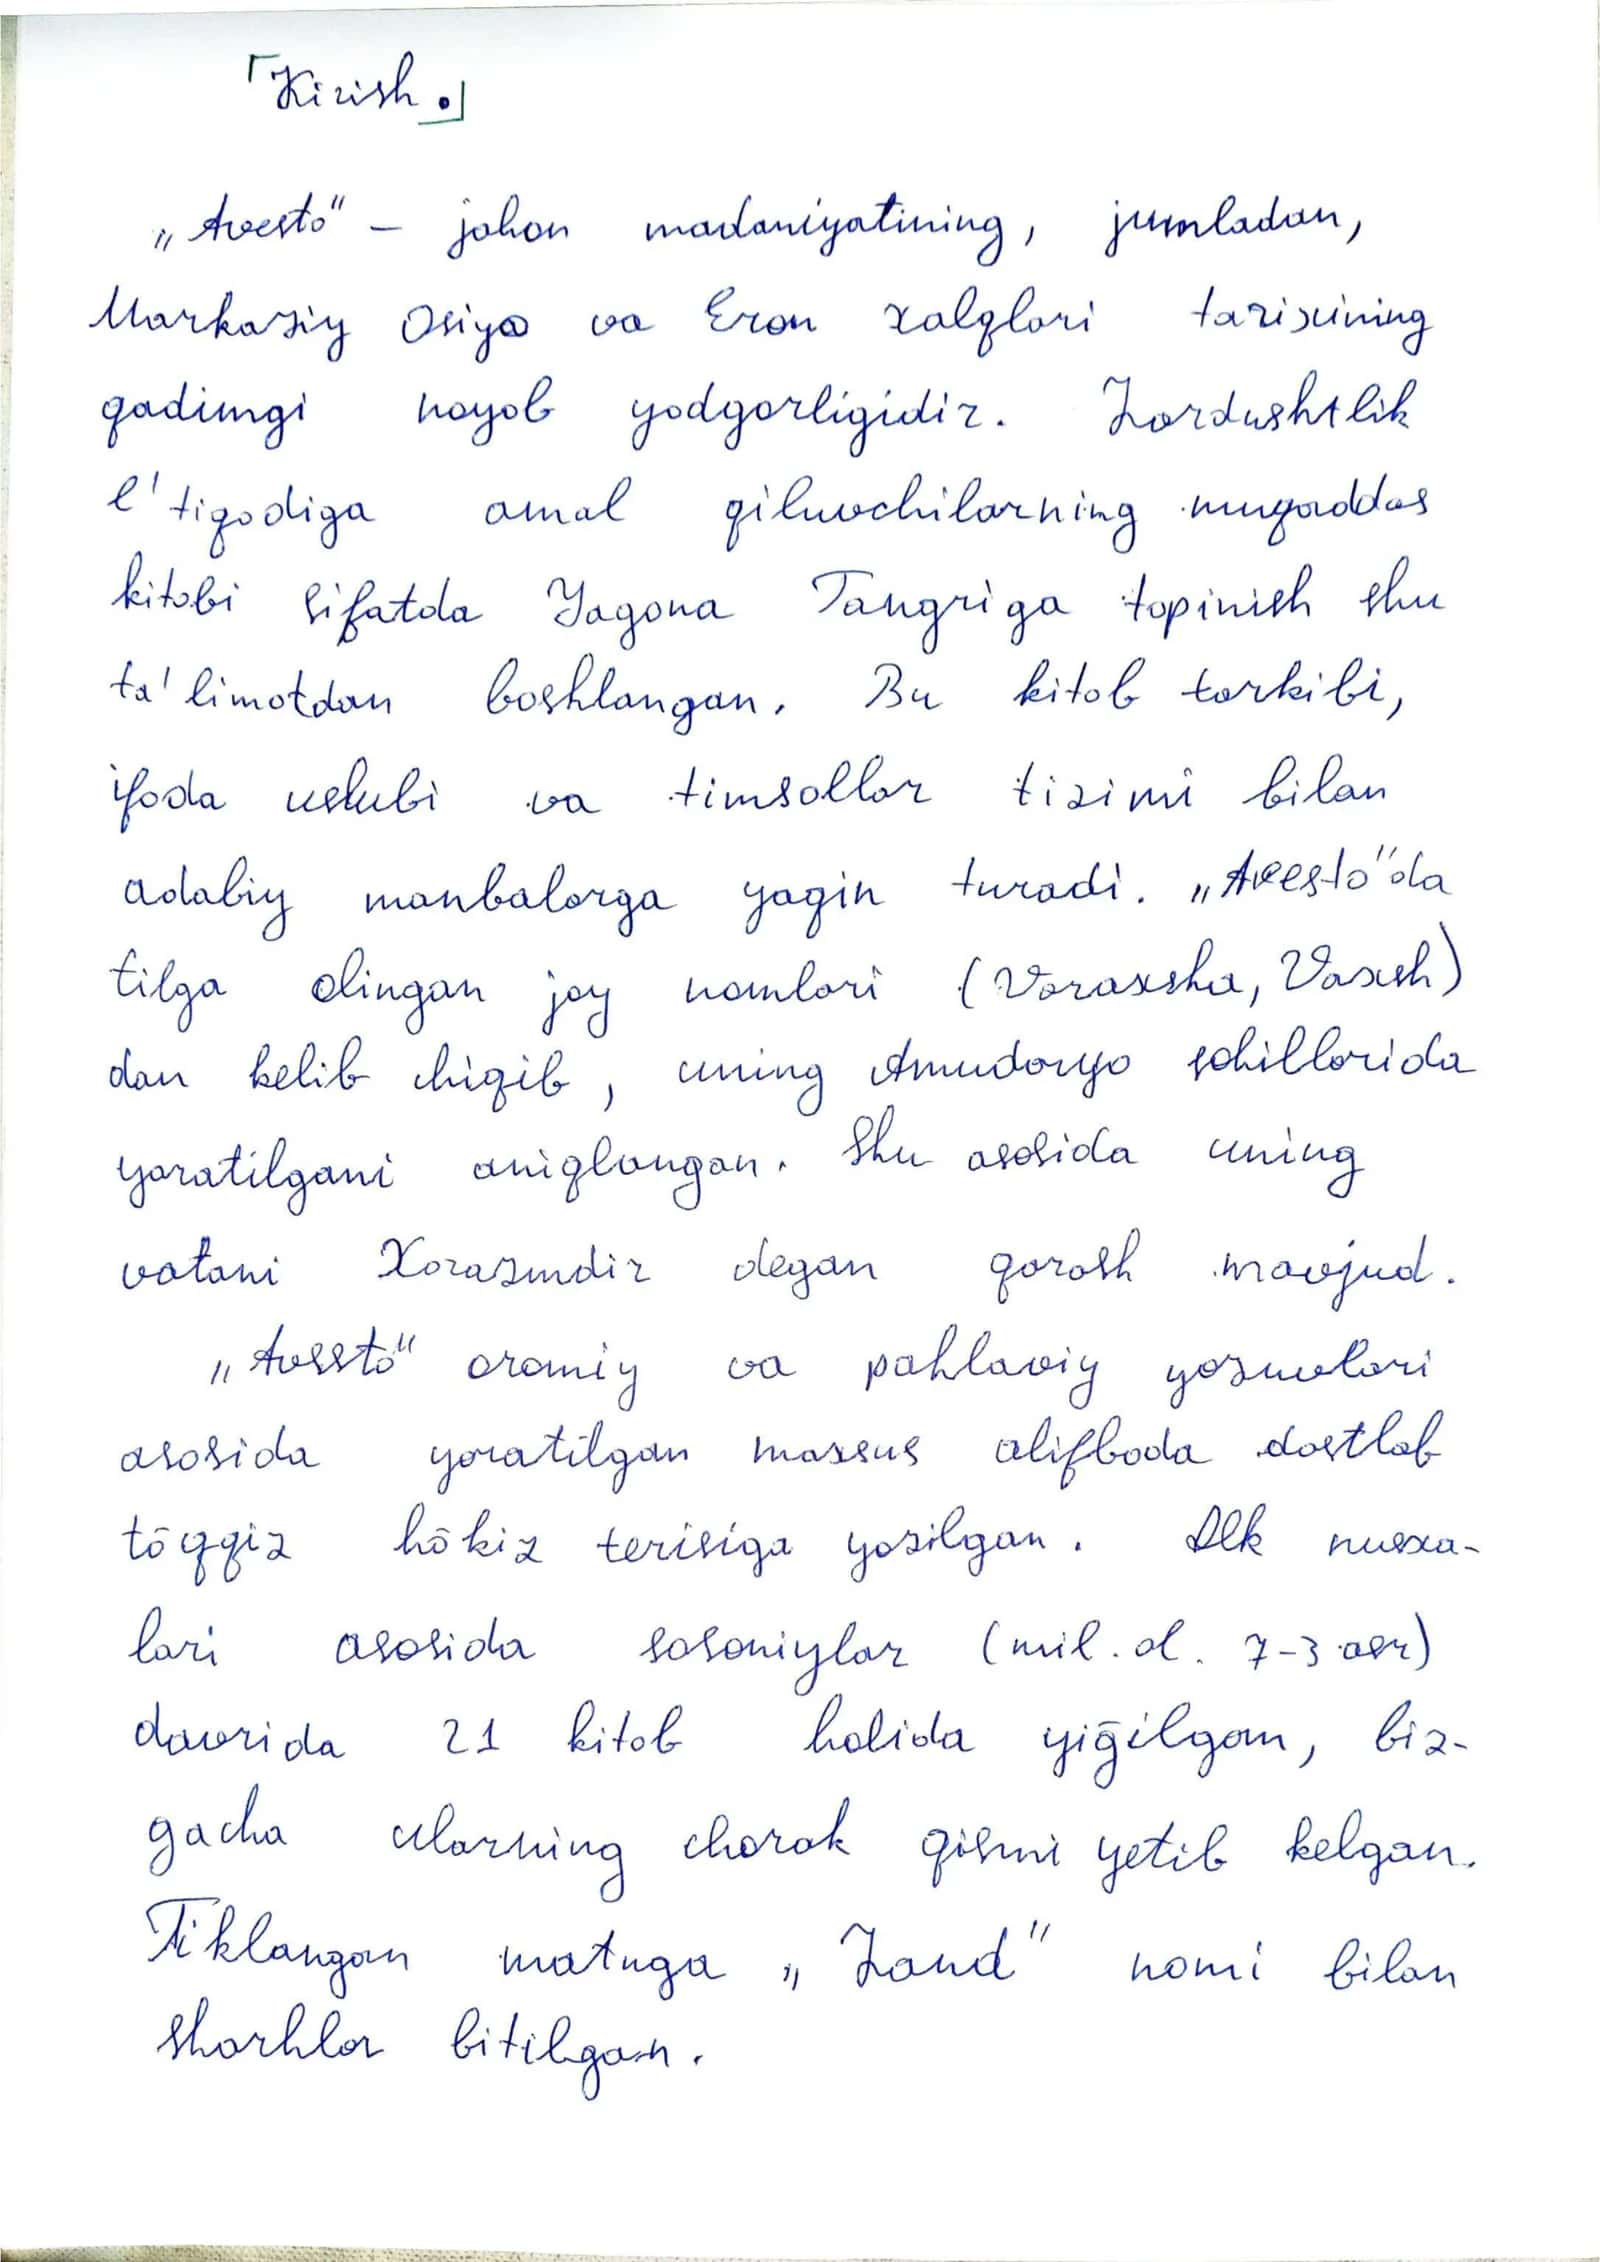 「Kirish.」
„Avesto" – jahon madaniyatining, jumladan,
Markaziy Osiyo va Eron xalqlari tarixining
qadimgi noyob yodgorligidir. Zardushtlik
e'tiqodiga amal qiluvchilarning muqaddas
kitobi sifatda Yagona Tangriga topinish shu
ta'limotdan boshlangan. Bu kitob tarkibi,
ifoda uslubi va timsollar tizimi bilan
adabiy manbalarga yaqin turadi. „Avesto"da
tilga olingan joy nomlari (Varaxsha, Vaxsh)
dan kelib chiqib, uning Amudaryo sohillarida
yaratilgani aniqlangan. Shu asosida uning
vatani Xorazmdir degan qarash mavjud.
„Avesto" oromiy va pahlaviy yozuvlari
asosida yaratilgan maxsus alifboda dastlab
tōqqiz hōkiz terisiga yozilgan. Ilk nusxa-
lari asosida sosoniylar (mil. ol. 7-3 asr)
davrida 21 kitob holida yiḡilgan, biz-
gacha ularning chorak qismi yetib kelgan.
Tiklangan matnga „Zand" nomi bilan
sharhlar bitilgan.